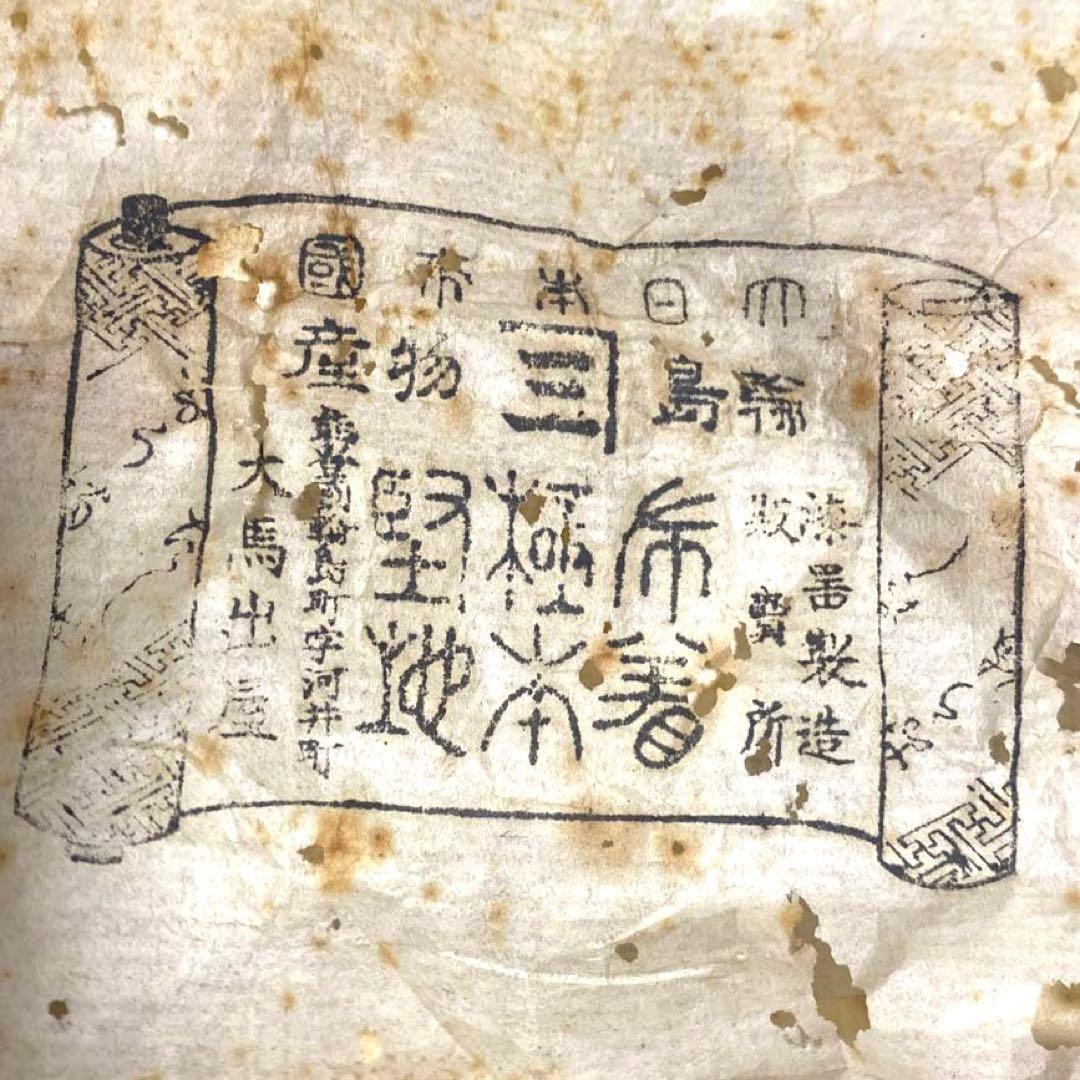 大日本帝國
輪島物産
漆器製造
販賣所
布着
極本
堅地
輪島町字河井町
大馬出屋